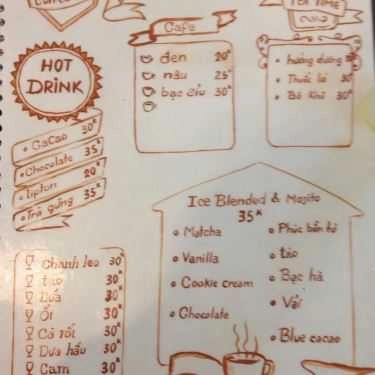 Cafe
đen 20k
nâu 25k
bạc xỉu 30k
TEA TIME
hướng dương 30k
Thuốc lá 30k
Bò Khô 30k
HOT
DRINK
Cacao 30k
Chocolate 35k
Lipton 20k
Trà gừng 35k
Ice Blended & Mojito
35k
Matcha
Vanilla
Cookie cream
Chocolate
Phúc bồn tử
táo
Bạc hà
Vải
Blue cacao
Chanh leo 30k
táo 30k
Dứa 30k
Ổi 30k
Cà rốt 30k
Dưa hấu 30k
Cam 30k